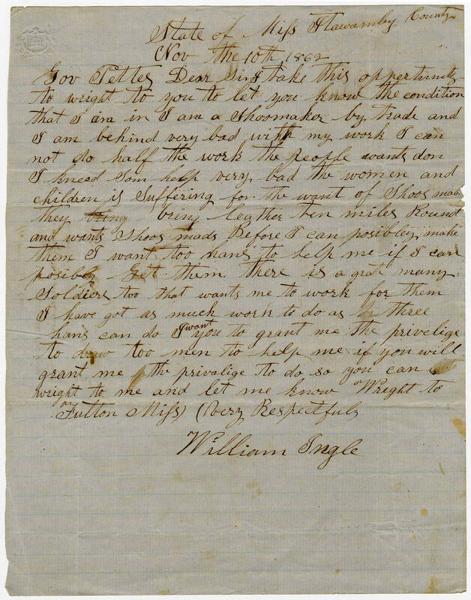 State of Miss Itawamby County
Nov the 10th 1862
Gov Pettes Dear Sir I take this oppertunity
to wright to you to let you know the condition
that I am in I am a Shoemaker by trade and
I am behind very bad with my work I can
not do half the work the people wants don
I knead som help very bad the women and
children is Suffering for the want of Shoes made
they bring leather ten miles Round
and wants Shoes made Before I can posibley make
them I want too hans to help me if I can
posible get them there is a grat many
Soldiers too that wants me to work for them
I have got as much work to do as three
hans can do I want you to grant me the privelige
to draw too men to help me if you will
grant me the privalige to do so you can
wright to me and let me know Wright to
Fulton Miss) (Very Respectfuly
William Ingle